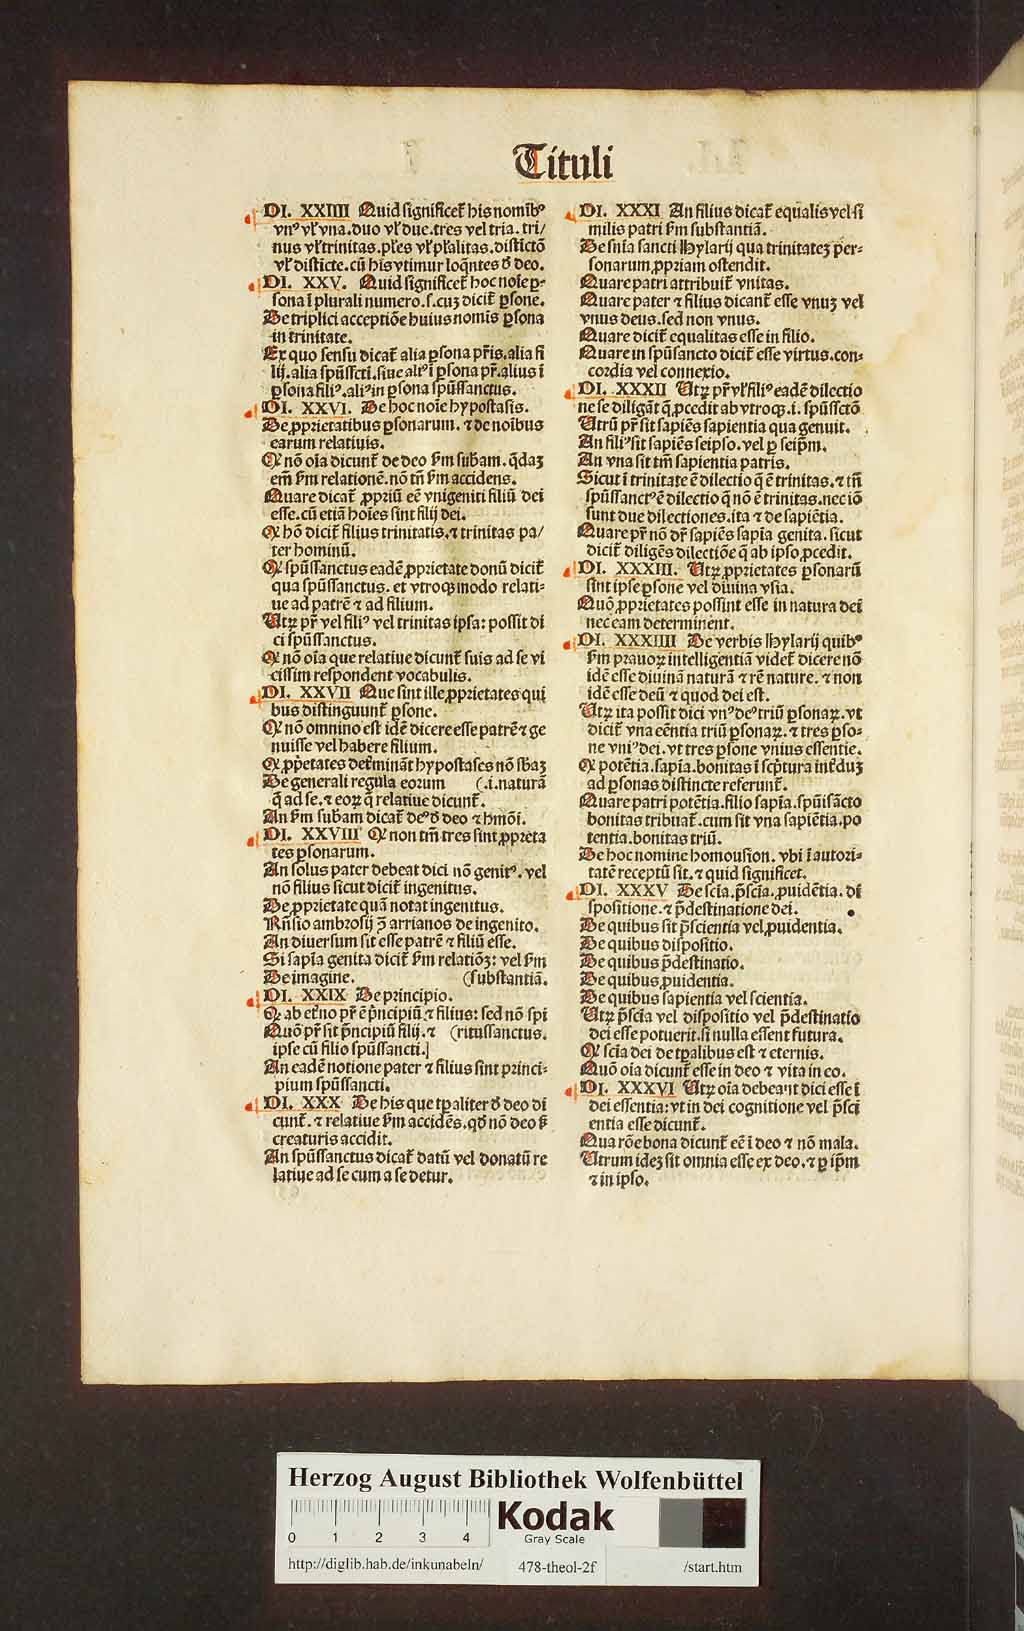 Tituli
DI. XXIIII Quid significet̃ his nomĩbꝰ
vnꝰ vl̃ vna. duo vl̃ due. tres vel tria. tri/
nus vl̃ trinitas. pl̃es vl̃ pl̃alitas. distictõ
vl̃ disticte. cũ his vtimur loq̃ntes ð deo.
DI. XXV. Quid significet̃ hoc noĩe ꝑ-
sona ĩ plurali numero. s. cuʒ dicit̃ ꝑsone.
De triplici acceptiõe huius nomis ꝑsona
in trinitate.
Ex quo sensu dicat̃ alia ꝑsona pr̃is, alia fi
lij. alia spũssct̃i. siue altꝰ ĩ ꝑsona pr̃. alius ĩ
ꝑsona filiꝰ. aliꝰ in ꝑsona spũssanctus.
DI. XXVI. De hoc noĩe hypostasis.
De ꝓprietatibus ꝑsonarum. ⁊ de noĩbus
earum relatiuis.
Qꝛ nõ oĩa dicunt̃ de deo ẜm subãm. q̃daʒ
em̃ ẜm relationẽ. nõ tñ ẜm accidens.
Quare dicat̃ ꝓpriũ eẽ vnigeniti filiũ dei
esse. cũ etiã hoĩes sint filij dei.
Qꝛ hõ dicit̃ filius trinitatis. ⁊ trinitas pa/
ter hominũ.
Qꝛ spũssanctus eadẽ ꝓprietate donũ dicit̃
qua spũssanctus. et vtroqꝫ modo relati-
ue ad patrẽ ⁊ ad filium.
Utꝝ pr̃ vel filiꝰ vel trinitas ipsa: possit di
ci spũssanctus.
Qꝛ nõ oĩa que relatiue dicunt̃ suis ad se vi
cissim respondent vocabulis.
DI. XXVII Que sint ille ꝓprietates qui
bus distinguunt̃ ꝑsone.
Qꝛ nõ omnino est idẽ dicere esse patrẽ ⁊ ge
nuisse vel habere filium.
Qꝛ ꝓp̃etates det̃minãt hypostases nõ sb̃aʒ
De generali regula eorum (.i. naturã
q̃ ad se. ⁊ eoꝝ q̃ relatiue dicunt̃.
An ẜm subam dicat̃ deꝰ ð deo ⁊ hmõi.
DI. XXVIII Qꝛ non tm̃ tres sint ꝓprieta
tes ꝑsonarum.
An solus pater debeat dici nõ genitꝰ. vel
nõ filius sicut dicit̃ ingenitus.
De ꝓprietate quã notat ingenitus.
Rñsio ambrosij ꝯ̃ arrianos de ingenito.
An diuersum sit esse patrẽ ⁊ filiũ esse.
Si sapĩa genita dicit̃ ẜm relatiõʒ: vel ẜm
De imagine. (substantiã.
DI. XXIX De principio.
Qꝛ ab et̃no pr̃ ẽ p̃ncipiũ ⁊ filius: sed nõ spi
Quõ pr̃ sit p̃ncipiũ filij. ⁊ (ritussanctus.
ipse cũ filio spũssancti.]
An eadẽ notione pater ⁊ filius sint princi-
pium spũssancti.
DI. XXX De his que tp̃aliter ð deo di
cunt̃. ⁊ relatiue ẜm accidẽs. qð nõ deo ẜ
creaturis accidit.
An spũssanctus dicat̃ datũ vel donatũ re
latiue ad se cum a se detur.
DI. XXXI An filius dicat̃ equalis vel si
milis patri ẜm substantiã.
De snĩa sancti Hylarij qua trinitateʒ per-
sonarum ꝓpriam ostendit.
Quare patri attribuit̃ vnitas.
Quare pater ⁊ filius dicant̃ esse vnuʒ vel
vnus deus. sed non vnus.
Quare dicit̃ equalitas esse in filio.
Quare in spũsancto dicit̃ esse virtus. con-
cordia vel connexio.
DI. XXXII Utꝝ pr̃ vl̃ filiꝰ eadẽ dilectio
ne se diligãt q̃ ꝓcedit ab vtroqꝫ. i. spũssctõ
Utrũ pr̃ sit sapiẽs sapientia qua genuit.
An filiꝰ sit sapiẽs seipso. vel ꝑ seip̃m.
An vna sit tm̃ sapientia patris.
Sicut ĩ trinitate ẽ dilectio q̃ ẽ trinitas. ⁊ tñ
spũssanctꝰ ẽ dilectio q̃ nõ ẽ trinitas. nec iõ
sunt due dilectiones. ita ⁊ de sapiẽtia.
Quare pr̃ nõ dr̃ sapiẽs sapĩa genita. sicut
dicit̃ diligẽs dilectiõe q̃ ab ipso ꝓcedit.
DI. XXXIII. Utꝝ ꝓprietates ꝑsonarũ
sint ipse ꝑsone vel diuina vsia.
Quõ ꝓprietates possint esse in natura dei
nec eam determinent.
DI. XXXIIII De verbis Hylarij quibꝰ
ẜm prauoꝝ intelligentiã videt̃ dicere nõ
idẽ esse diuinã naturã ⁊ rẽ nature. ⁊ non
idẽ esse deũ ⁊ quod dei est.
Utꝝ ita possit dici vnꝰ deꝰ triũ ꝑsonaꝝ. vt
dicit̃ vna eẽntia triũ ꝑsonaꝝ. ⁊ tres ꝑso-
ne vniꝰ dei. vt tres ꝑsone vnius essentie.
Qꝛ potẽtia. sapĩa. bonitas ĩ scp̃tura int̃duʒ
ad ꝑsonas distincte referunt̃.
Quare patri potẽtia. filio sapĩa. spũisãcto
bonitas tribuat̃. cum sit vna sapiẽtia. po
tentia. bonitas triũ.
De hoc nomine homousion. vbi ĩ autori-
tatẽ receptũ sit. ⁊ quid significet.
DI. XXXV De scĩa. p̃scĩa. ꝓuidẽtia. di
spositione. ⁊ p̃destinatione dei.
De quibus sit p̃scientia vel ꝓuidentia.
De quibus dispositio.
De quibus p̃destinatio.
De quibus ꝓuidentia.
De quibus sapientia vel scientia.
Utꝝ p̃scĩa vel dispositio vel p̃destinatio
dei esse potuerit. si nulla essent futura.
Qꝛ scĩa dei de tp̃alibus est ⁊ eternis.
Quõ oĩa dicunt̃ esse in deo ⁊ vita in eo.
DI. XXXVI Utꝝ oĩa debeant dici esse ĩ
dei essentia: vt in dei cognitione vel p̃sci
entia esse dicunt̃.
Qua rõe bona dicunt̃ eẽ ĩ deo ⁊ nõ mala.
Utrum ideʒ sit omnia esse ex deo. ⁊ ꝑ ip̃m
⁊ in ipso.
Herzog August Bibliothek Wolfenbüttel
0 1 2 3 4
Kodak
Gray Scale
http://diglib.hab.de/inkunabeln/ 478-theol-2f /start.htm